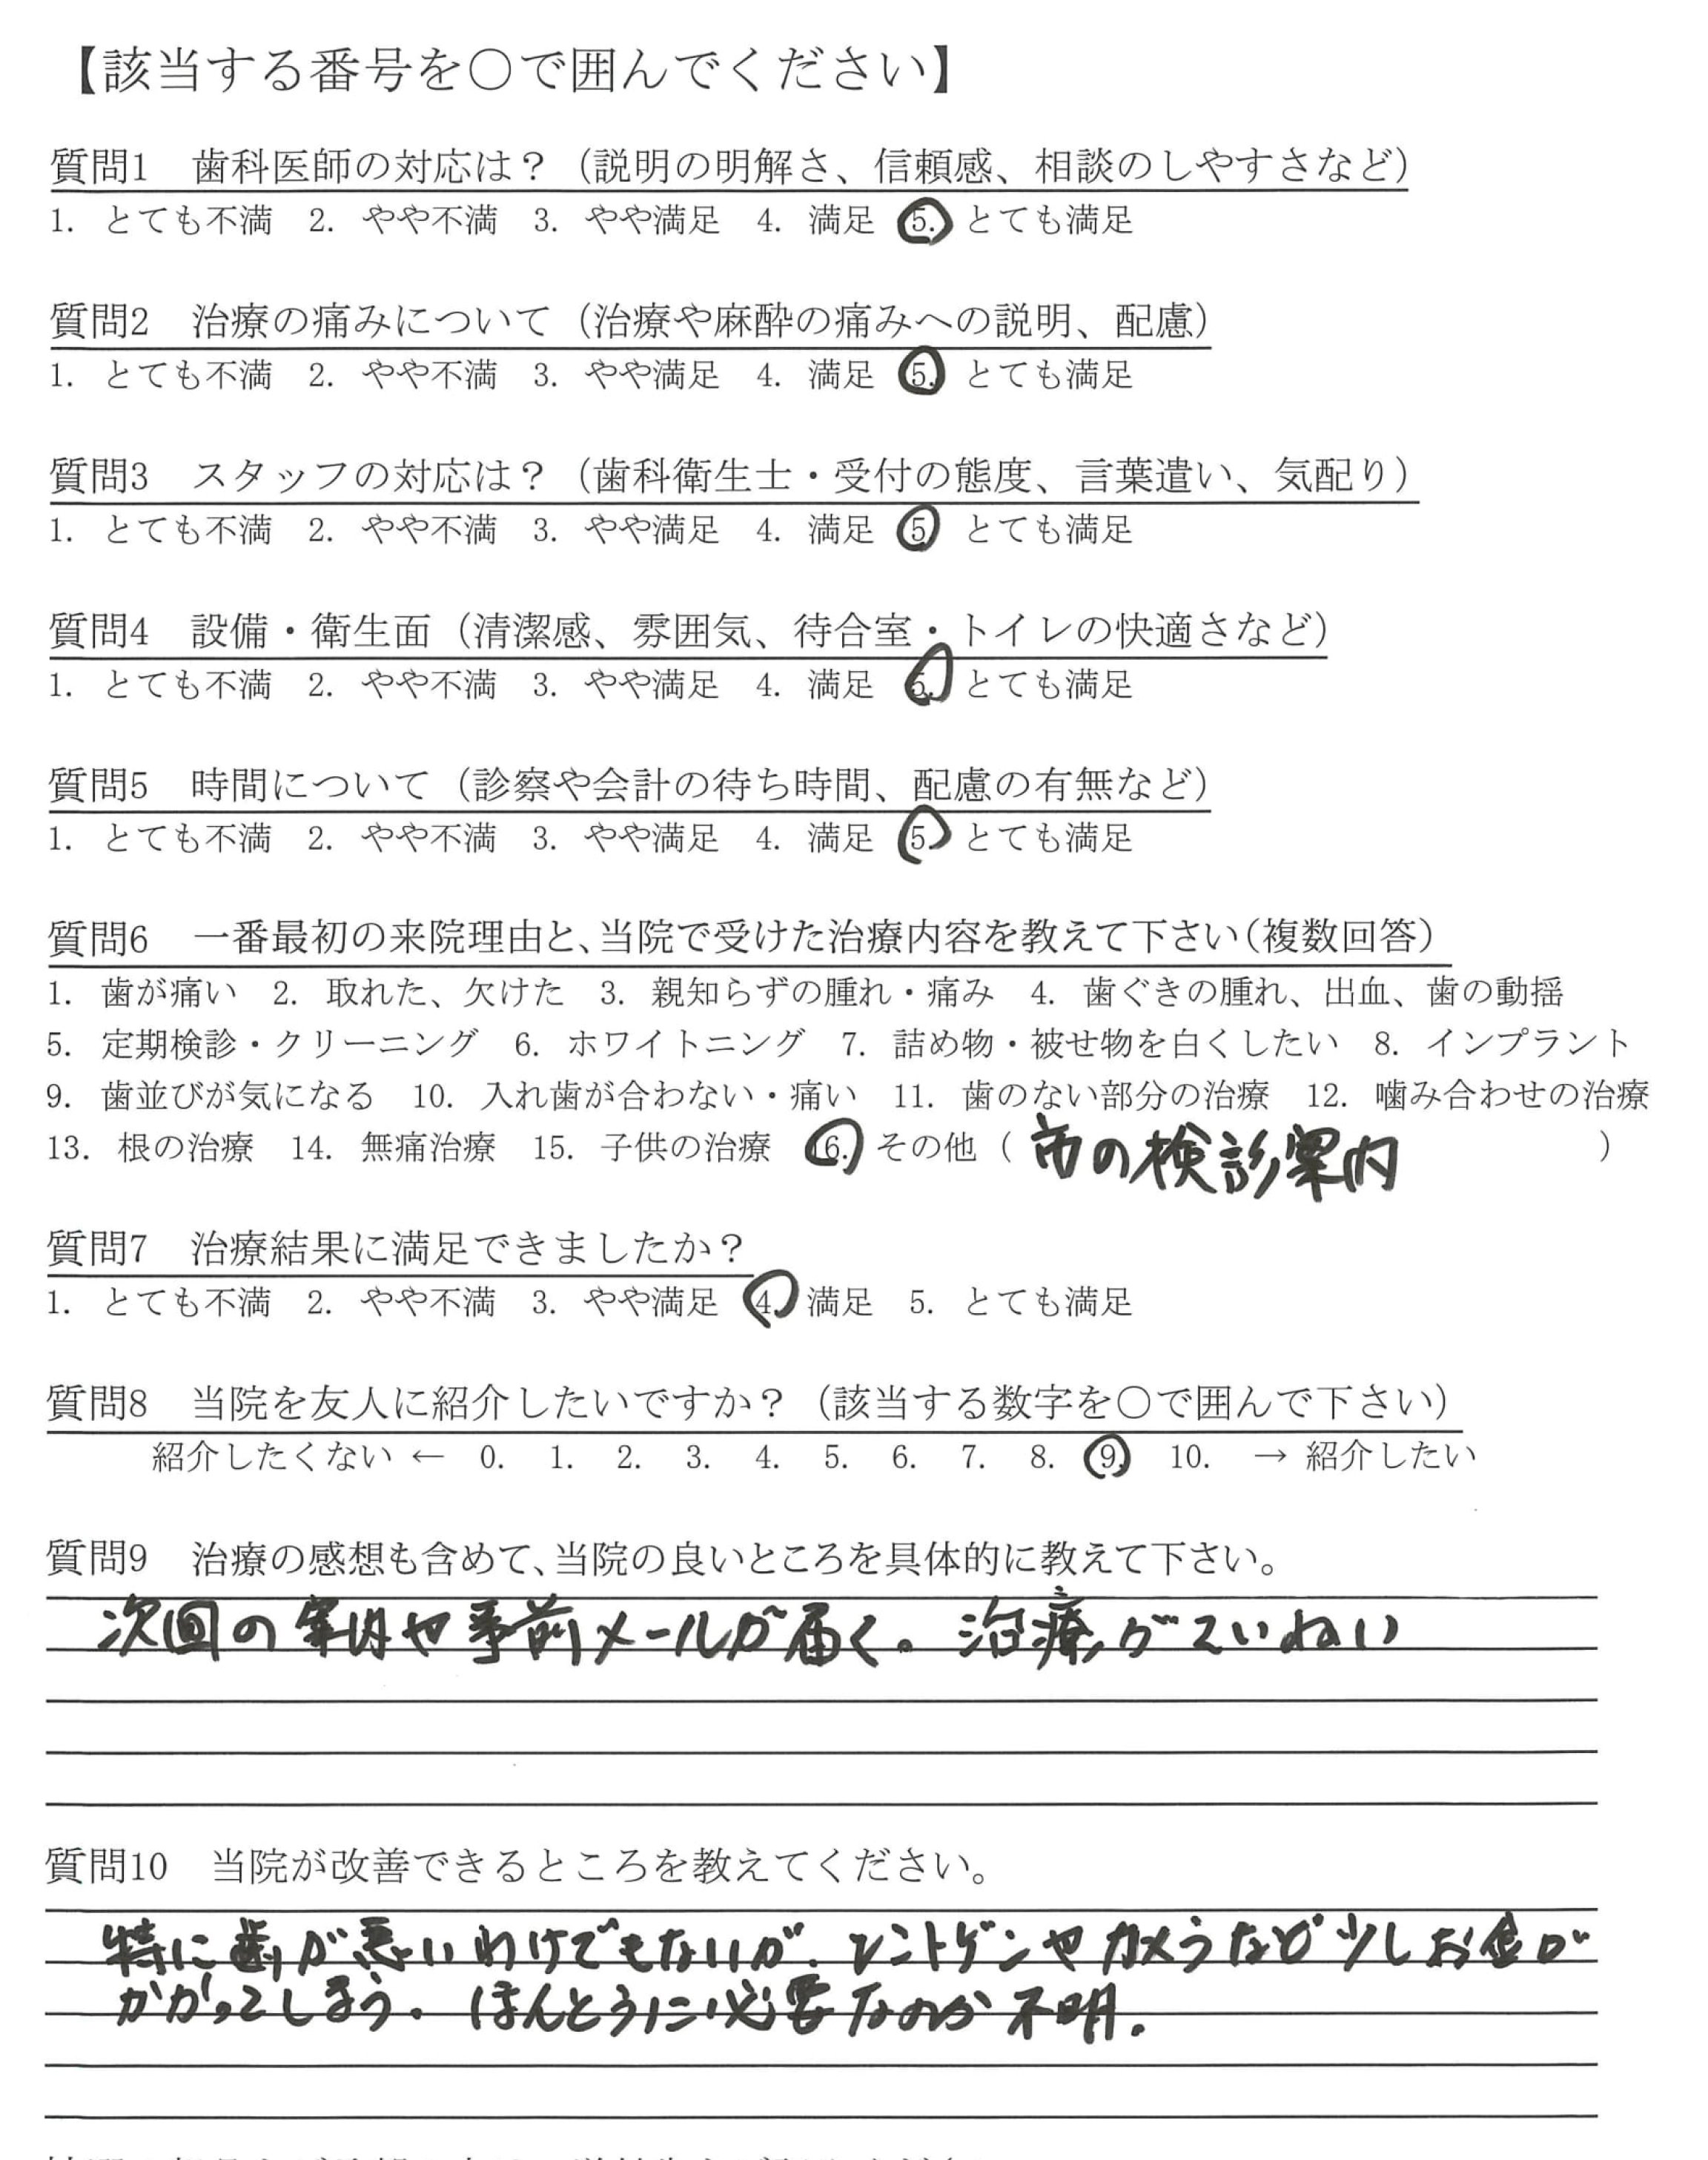 【該当する番号を○で囲んでください】
質問1　歯科医師の対応は？（説明の明解さ、信頼感、相談のしやすさなど）
1. とても不満　2. やや不満　3. やや満足　4. 満足　5. とても満足
質問2　治療の痛みについて（治療や麻酔の痛みへの説明、配慮）
1. とても不満　2. やや不満　3. やや満足　4. 満足　5. とても満足
質問3　スタッフの対応は？（歯科衛生士・受付の態度、言葉遣い、気配り）
1. とても不満　2. やや不満　3. やや満足　4. 満足　5 とても満足
質問4　設備・衛生面（清潔感、雰囲気、待合室・トイレの快適さなど）
1. とても不満　2. やや不満　3. やや満足　4. 満足　5. とても満足
質問5　時間について（診察や会計の待ち時間、配慮の有無など）
1. とても不満　2. やや不満　3. やや満足　4. 満足　5. とても満足
質問6　一番最初の来院理由と、当院で受けた治療内容を教えて下さい（複数回答）
1. 歯が痛い　2. 取れた、欠けた　3. 親知らずの腫れ・痛み　4. 歯ぐきの腫れ、出血、歯の動揺
5. 定期検診・クリーニング　6. ホワイトニング　7. 詰め物・被せ物を白くしたい　8. インプラント
9. 歯並びが気になる　10. 入れ歯が合わない・痛い　11. 歯のない部分の治療　12. 噛み合わせの治療
13. 根の治療　14. 無痛治療　15. 子供の治療　16. その他（ 市の検診案内 ）
質問7　治療結果に満足できましたか？
1. とても不満　2. やや不満　3. やや満足　4. 満足　5. とても満足
質問8　当院を友人に紹介したいですか？（該当する数字を○で囲んで下さい）
紹介したくない ← 0. 1. 2. 3. 4. 5. 6. 7. 8. 9. 10. → 紹介したい
質問9　治療の感想も含めて、当院の良いところを具体的に教えて下さい。
次回の案内や事前メールが届く。治療がていねい
質問10　当院が改善できるところを教えてください。
特に歯が悪いわけでもないが、レントゲンやカメラなど少しお金が
かかってしまう。ほんとうに必要なのか不明.